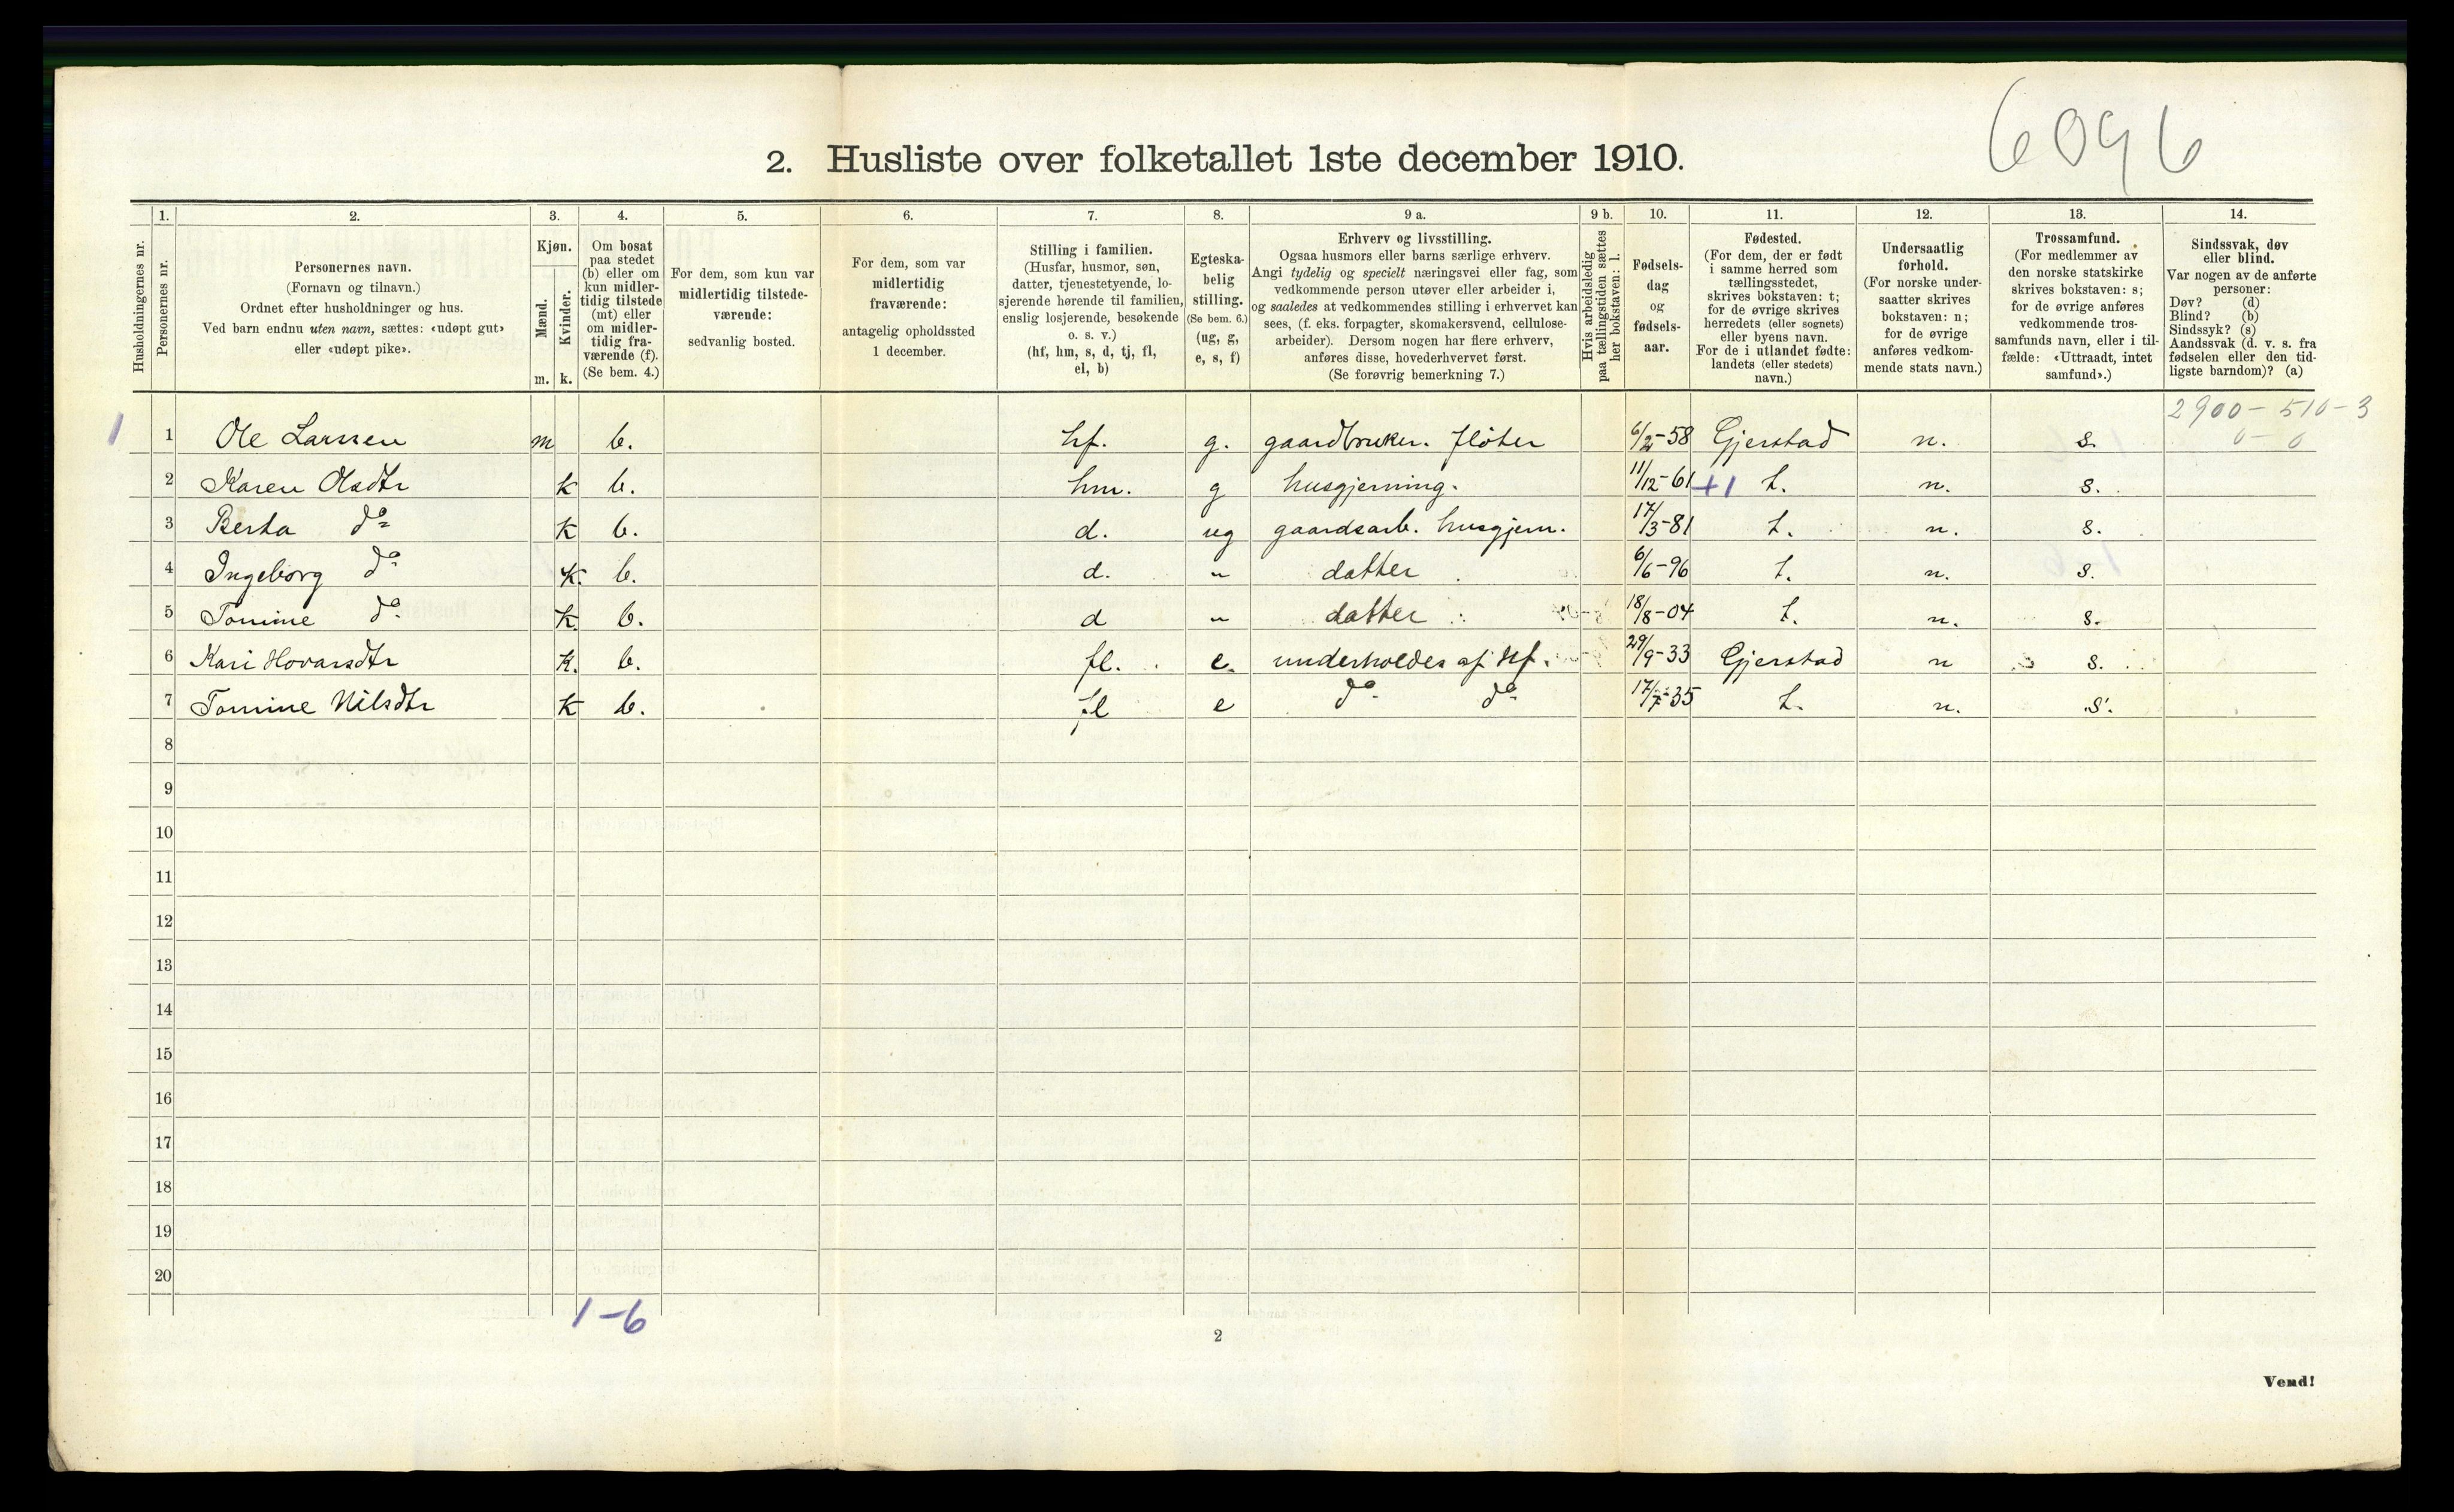 6096
2. Husliste over folketallet 1ste december 1910.
Husholdningernes nr.
1. Personernes nr.
2. Personernes navn. (Fornavn og tilnavn.) Ordnet efter husholdninger og hus. Ved barn endnu uten navn, sættes: «udøpt gut» eller «udøpt pike».
3. Kjøn. Mænd. m. Kvinder. k.
4. Om bosat paa stedet (b) eller om kun midlertidig tilstede (mt) eller om midlertidig fraværende (f). (Se bem. 4.)
5. For dem, som kun var midlertidig tilstedeværende: sedvanlig bosted.
6. For dem, som var midlertidig fraværende: antagelig opholdssted 1 december.
7. Stilling i familien. (Husfar, husmor, søn, datter, tjenestetyende, losjerende hørende til familien, enslig losjerende, besøkende o. s. v.) (hf, hm, s, d, tj, fl, el, b)
8. Egteskabelig stilling. (Se bem. 6.) (ug, g, e, s, f)
9 a. Erhverv og livsstilling. Ogsaa husmors eller barns særlige erhverv. Angi tydelig og specielt næringsvei eller fag, som vedkommende person utøver eller arbeider i, og saaledes at vedkommendes stilling i erhvervet kan sees, (f. eks. forpagter, skomakersvend, cellulosearbeider). Dersom nogen har flere erhverv, anføres disse, hovederhvervet først. (Se forøvrig bemerkning 7.)
9 b. Hvis arbeidsledig paa tællingstiden sættes her bokstaven: l.
10. Fødselsdag og fødselsaar.
11. Fødested. (For dem, der er født i samme herred som tællingsstedet, skrives bokstaven: t; for de øvrige skrives herredets (eller sognets) eller byens navn. For de i utlandet fødte: landets (eller stedets) navn.)
12. Undersaatlig forhold. (For norske undersaatter skrives bokstaven: n; for de øvrige anføres vedkommende stats navn.)
13. Trossamfund. (For medlemmer av den norske statskirke skrives bokstaven: s; for de øvrige anføres vedkommende trossamfunds navn, eller i tilfælde: «Uttraadt, intet samfund».)
14. Sindssvak, døv eller blind. Var nogen av de anførte personer: Døv? (d) Blind? (b) Sindssyk? (s) Aandssvak (d. v. s. fra fødselen eller den tidligste barndom)? (a)
2900-510-3
0-0
1 1 Ole Larssen m b. hf. g. gaardbruker. fløter 6/2-58 Gjerstad n. s.
2 Karen Olsdtr k b. hm. g husgjerning. 11/12-61 +1 t. n. s.
3 Berta do k b. d. ug gaardsarb. husgjern. 17/3-81 t. n. s.
4 Ingeborg do k. b. d. " datter 6/6-96 t. n. s.
5 Tomine do k. b. d " datter 18/8-04 t. n. s.
6 Kari Hovarsdtr k. b. fl. e. underholdes af hf. 29/9-33 Gjerstad n s.
7 Tomine Nilsdtr k b. fl e do do 17/7-35 t. n. s.
8
9
10
11
12
13
14
15
16
17
18
19
20
1-6
2
Vend!